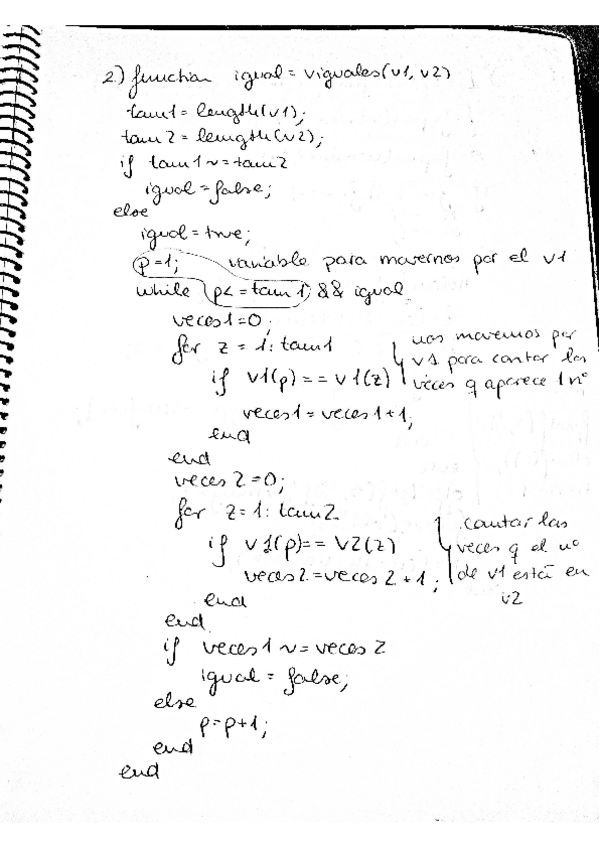 2) function igual = viguales(v1, v2)
tam1 = length(v1);
tam2 = length(v2);
if tam1 ~= tam2
igual = false;
else
igual = true;
p=1; variable para movernos por el v1
while p<=tam1 && igual
veces1=0;
for z = 1: tam1
nos movemos por
v1 para contar las
if v1(p) == v1(z)
veces q aparece 1 nº
veces1 = veces1+1;
end
end
veces2=0;
for z=1: tam2
contar las
if v1(p)== v2(z)
veces q el nº
veces2=veces2+1;
de v1 está en
v2
end
end
if veces1 ~= veces2
igual = false;
else
p=p+1;
end
end